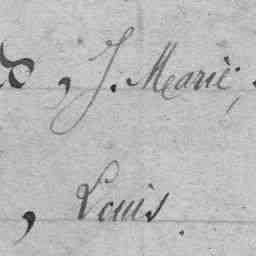 , J. Marie,
, Louis